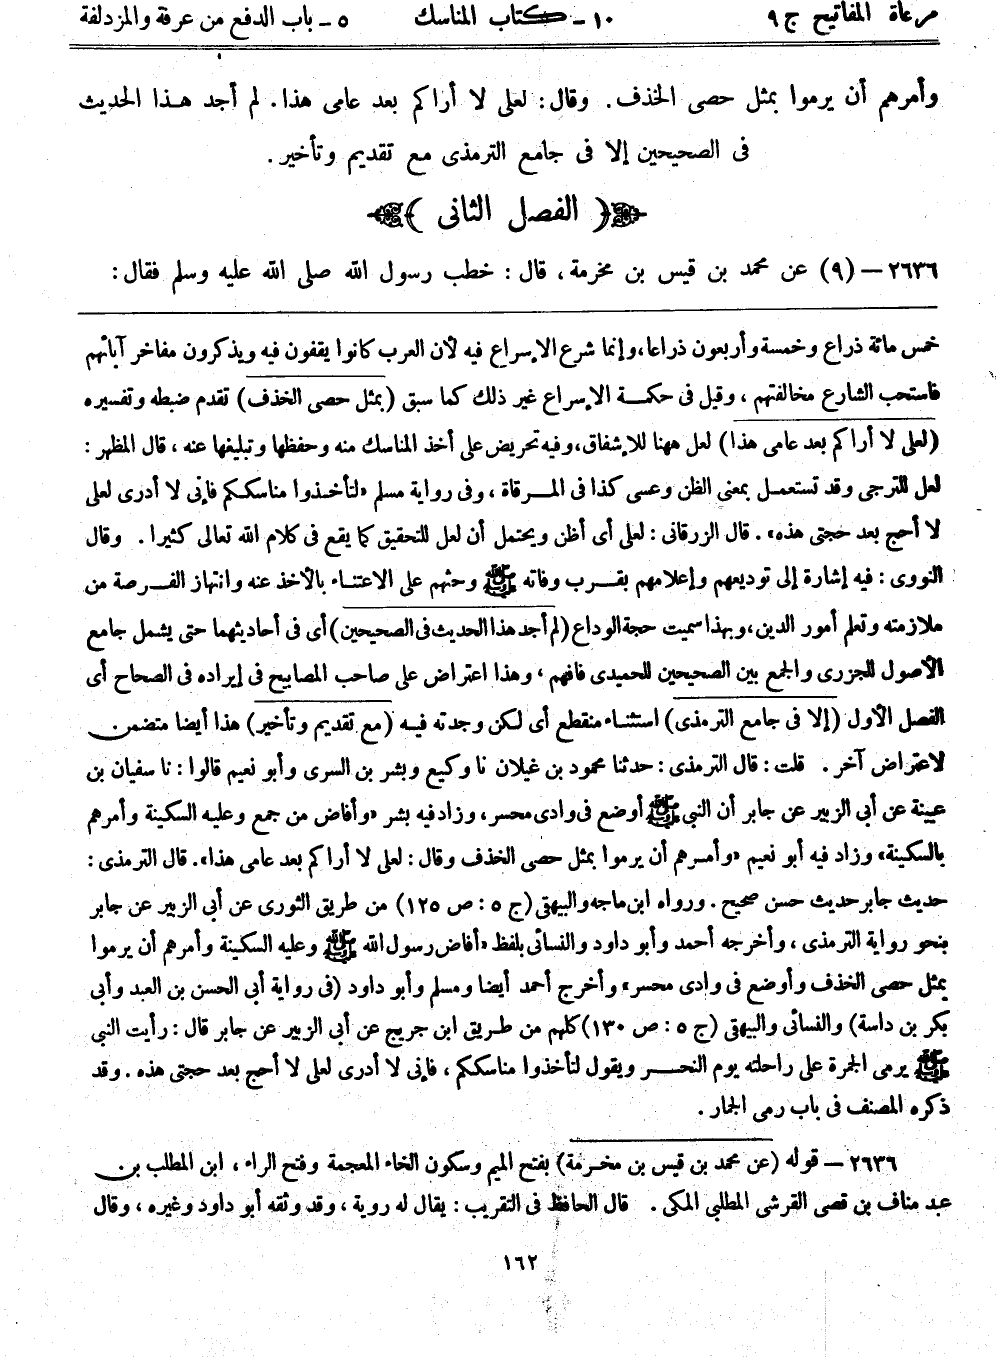 مرعاة المفاتيح ج ٩ ١٠ - كتاب المناسك ٥ - باب الدفع من عرفة والمزدلفة
وأمرهم أن يرموا بمثل حصى الخذف. وقال: لعلى لا أراكم بعد عامى هذا. لم أجد هذا الحديث
فى الصحيحين إلا فى جامع الترمذى مع تقديم وتأخير.
﴿ الفصل الثانى ﴾
٢٦٣٦ – (٩) عن محمد بن قيس بن مخرمة، قال: خطب رسول الله صلى الله عليه وسلم فقال:
خمس مائة ذراع وخمسة وأربعون ذراعا، وإنما شرع الإسراع فيه لأن العرب كانوا يقفون فيه ويذكرون مفاخر آبائهم
فاستحب الشارع مخالفتهم، وقيل فى حكمة الإسراع غير ذلك كما سبق (بمثل حصى الخذف) تقدم ضبطه وتفسيره
(لعلى لا أراكم بعد عامى هذا) لعل ههنا للإشفاق، وفيه تحريض على أخذ المناسك منه وحفظها وتبليغها عنه، قال المظهر:
لعل للترجى وقد تستعمل بمعنى الظن وعسى كذا فى المرقاة، وفى رواية مسلم «لتأخذوا مناسككم فإنى لا أدرى لعلى
لا أحج بعد حجتى هذه». قال الزرقانى: لعلى أى أظن ويحتمل أن لعل للتحقيق كما يقع فى كلام الله تعالى كثيرا. وقال
النووى: فيه إشارة إلى توديعهم وإعلامهم بقرب وفاته ﷺ وحثهم على الاعتناء بالأخذ عنه وانتهاز الفرصة من
ملازمته وتعلم أمور الدين، وبهذا سميت حجة الوداع (لم أجد هذا الحديث فى الصحيحين) أى فى أحاديثهما حتى يشمل جامع
الأصول للجزرى والجمع بين الصحيحين للحميدى فافهم، وهذا اعتراض على صاحب المصابيح فى إيراده فى الصحاح أى
الفصل الأول (إلا فى جامع الترمذى) استثناء منقطع أى لكن وجدته فيه (مع تقديم وتأخير) هذا أيضا متضمن
لاعتراض آخر. قلت: قال الترمذى: حدثنا محمود بن غيلان نا وكيع وبشر بن السرى وأبو نعيم قالوا: نا سفيان بن
عيينة عن أبى الزبير عن جابر أن النبى ﷺ أوضع فى وادى محسر، وزاد فيه بشر «وأفاض من جمع وعليه السكينة وأمرهم
بالسكينة» وزاد فيه أبو نعيم «وأمرهم أن يرموا بمثل حصى الخذف وقال: لعلى لا أراكم بعد عامى هذا». قال الترمذى:
حديث جابر حديث حسن صحيح. ورواه ابن ماجه والبيهقى (ج ٥: ص ١٢٥) من طريق الثورى عن أبى الزبير عن جابر
بنحو رواية الترمذى، وأخرجه أحمد وأبو داود والنسائى بلفظ «أفاض رسول الله ﷺ وعليه السكينة وأمرهم أن يرموا
بمثل حصى الخذف وأوضع فى وادى محسر» وأخرج أحمد أيضا ومسلم وأبو داود (فى رواية أبى الحسن بن العبد وأبى
بكر بن داسة) والنسائى والبيهقى (ج ٥: ص ١٣٠) كلهم من طريق ابن جريج عن أبى الزبير عن جابر قال: رأيت النبى
ﷺ يرمى الجمرة على راحلته يوم النحر ويقول لتأخذوا مناسككم، فإنى لا أدرى لعلى لا أحج بعد حجتى هذه. وقد
ذكره المصنف فى باب رمى الجمار.
٢٦٣٦ – قوله (عن محمد بن قيس بن مخرمة) بفتح الميم وسكون الخاء المعجمة وفتح الراء، ابن المطلب بن
عبد مناف بن قصى القرشى المطلبى المكى. قال الحافظ فى التقريب: يقال له روية، وقد وثقه أبو داود وغيره، وقال
١٦٢